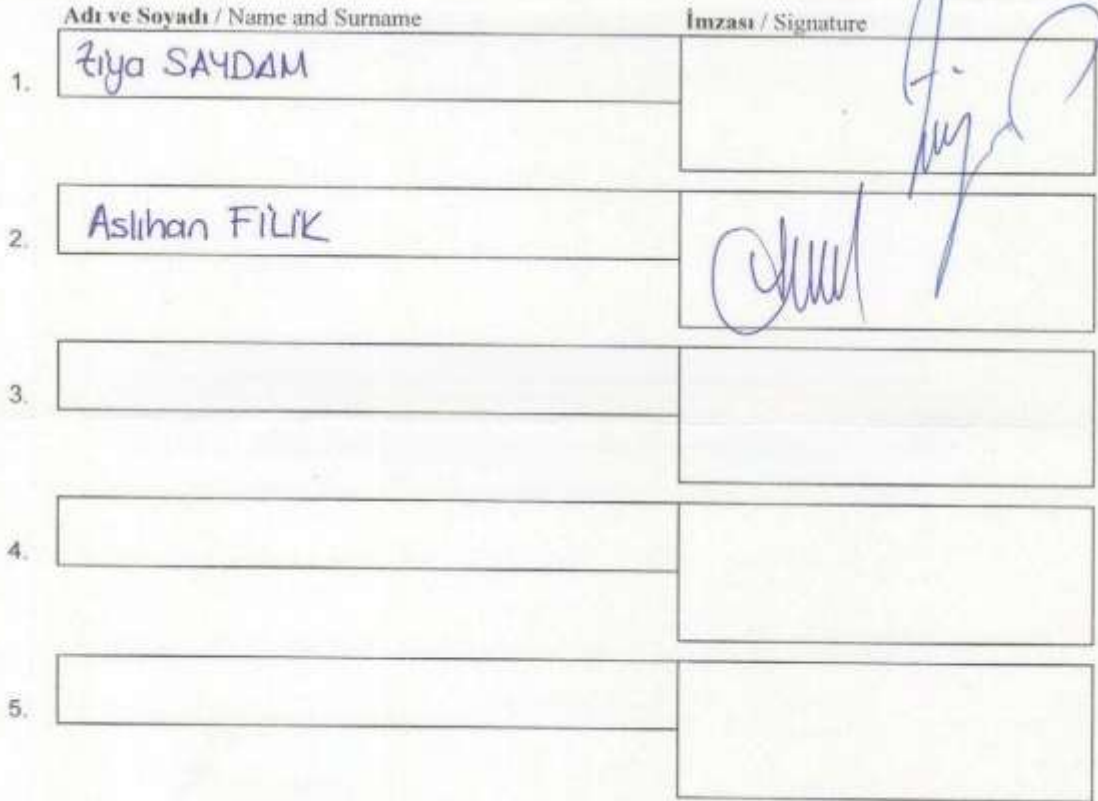 Adı ve Soyadı / Name and Surname İmzası / Signature
1. Ziya SAYDAM
2. Aslıhan FİLİK
3.
4.
5.